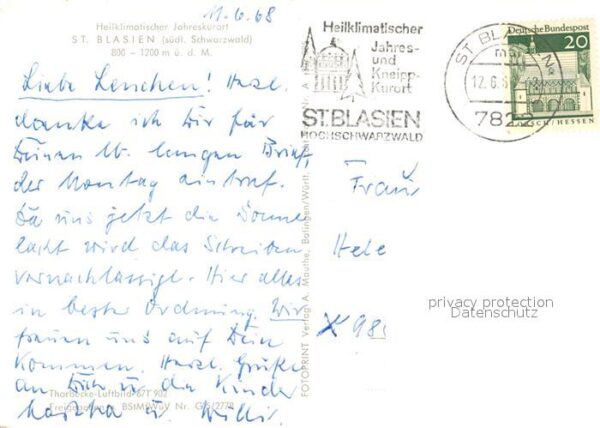 11.6.68
Heilklimatischer Jahreskurort
ST. BLASIEN (südl. Schwarzwald)
800 - 1200 m ü. d. M.
Liebe Lenchen! Herzl.
danke ich Dir für
Deinen lb. langen Brief,
der Montag eintraf.
Da uns jetzt die Sonne
lacht wird das Schreiben
vernachlässigt. Hier alles
in bester Ordnung. Wir
freuen uns auf Dein
Kommen. Herzl. Grüße
an Dich u. die Kinder
u. Willi.
Thorbecke-Luftbild 671 902
Freigegeben v. BStMfWuV Nr. G/5/2778
FOTOPRINT Verlag A. Mauthe, Balingen/Württ.
Heilklimatischer
Jahres-
und
Kneipp-
Kurort
ST.BLASIEN
HOCHSCHWARZWALD
ST. BLASIEN
12.6.
7822
Deutsche Bundespost
20
LORSCH/HESSEN
Frau
Hele
X 98
privacy protection
Datenschutz